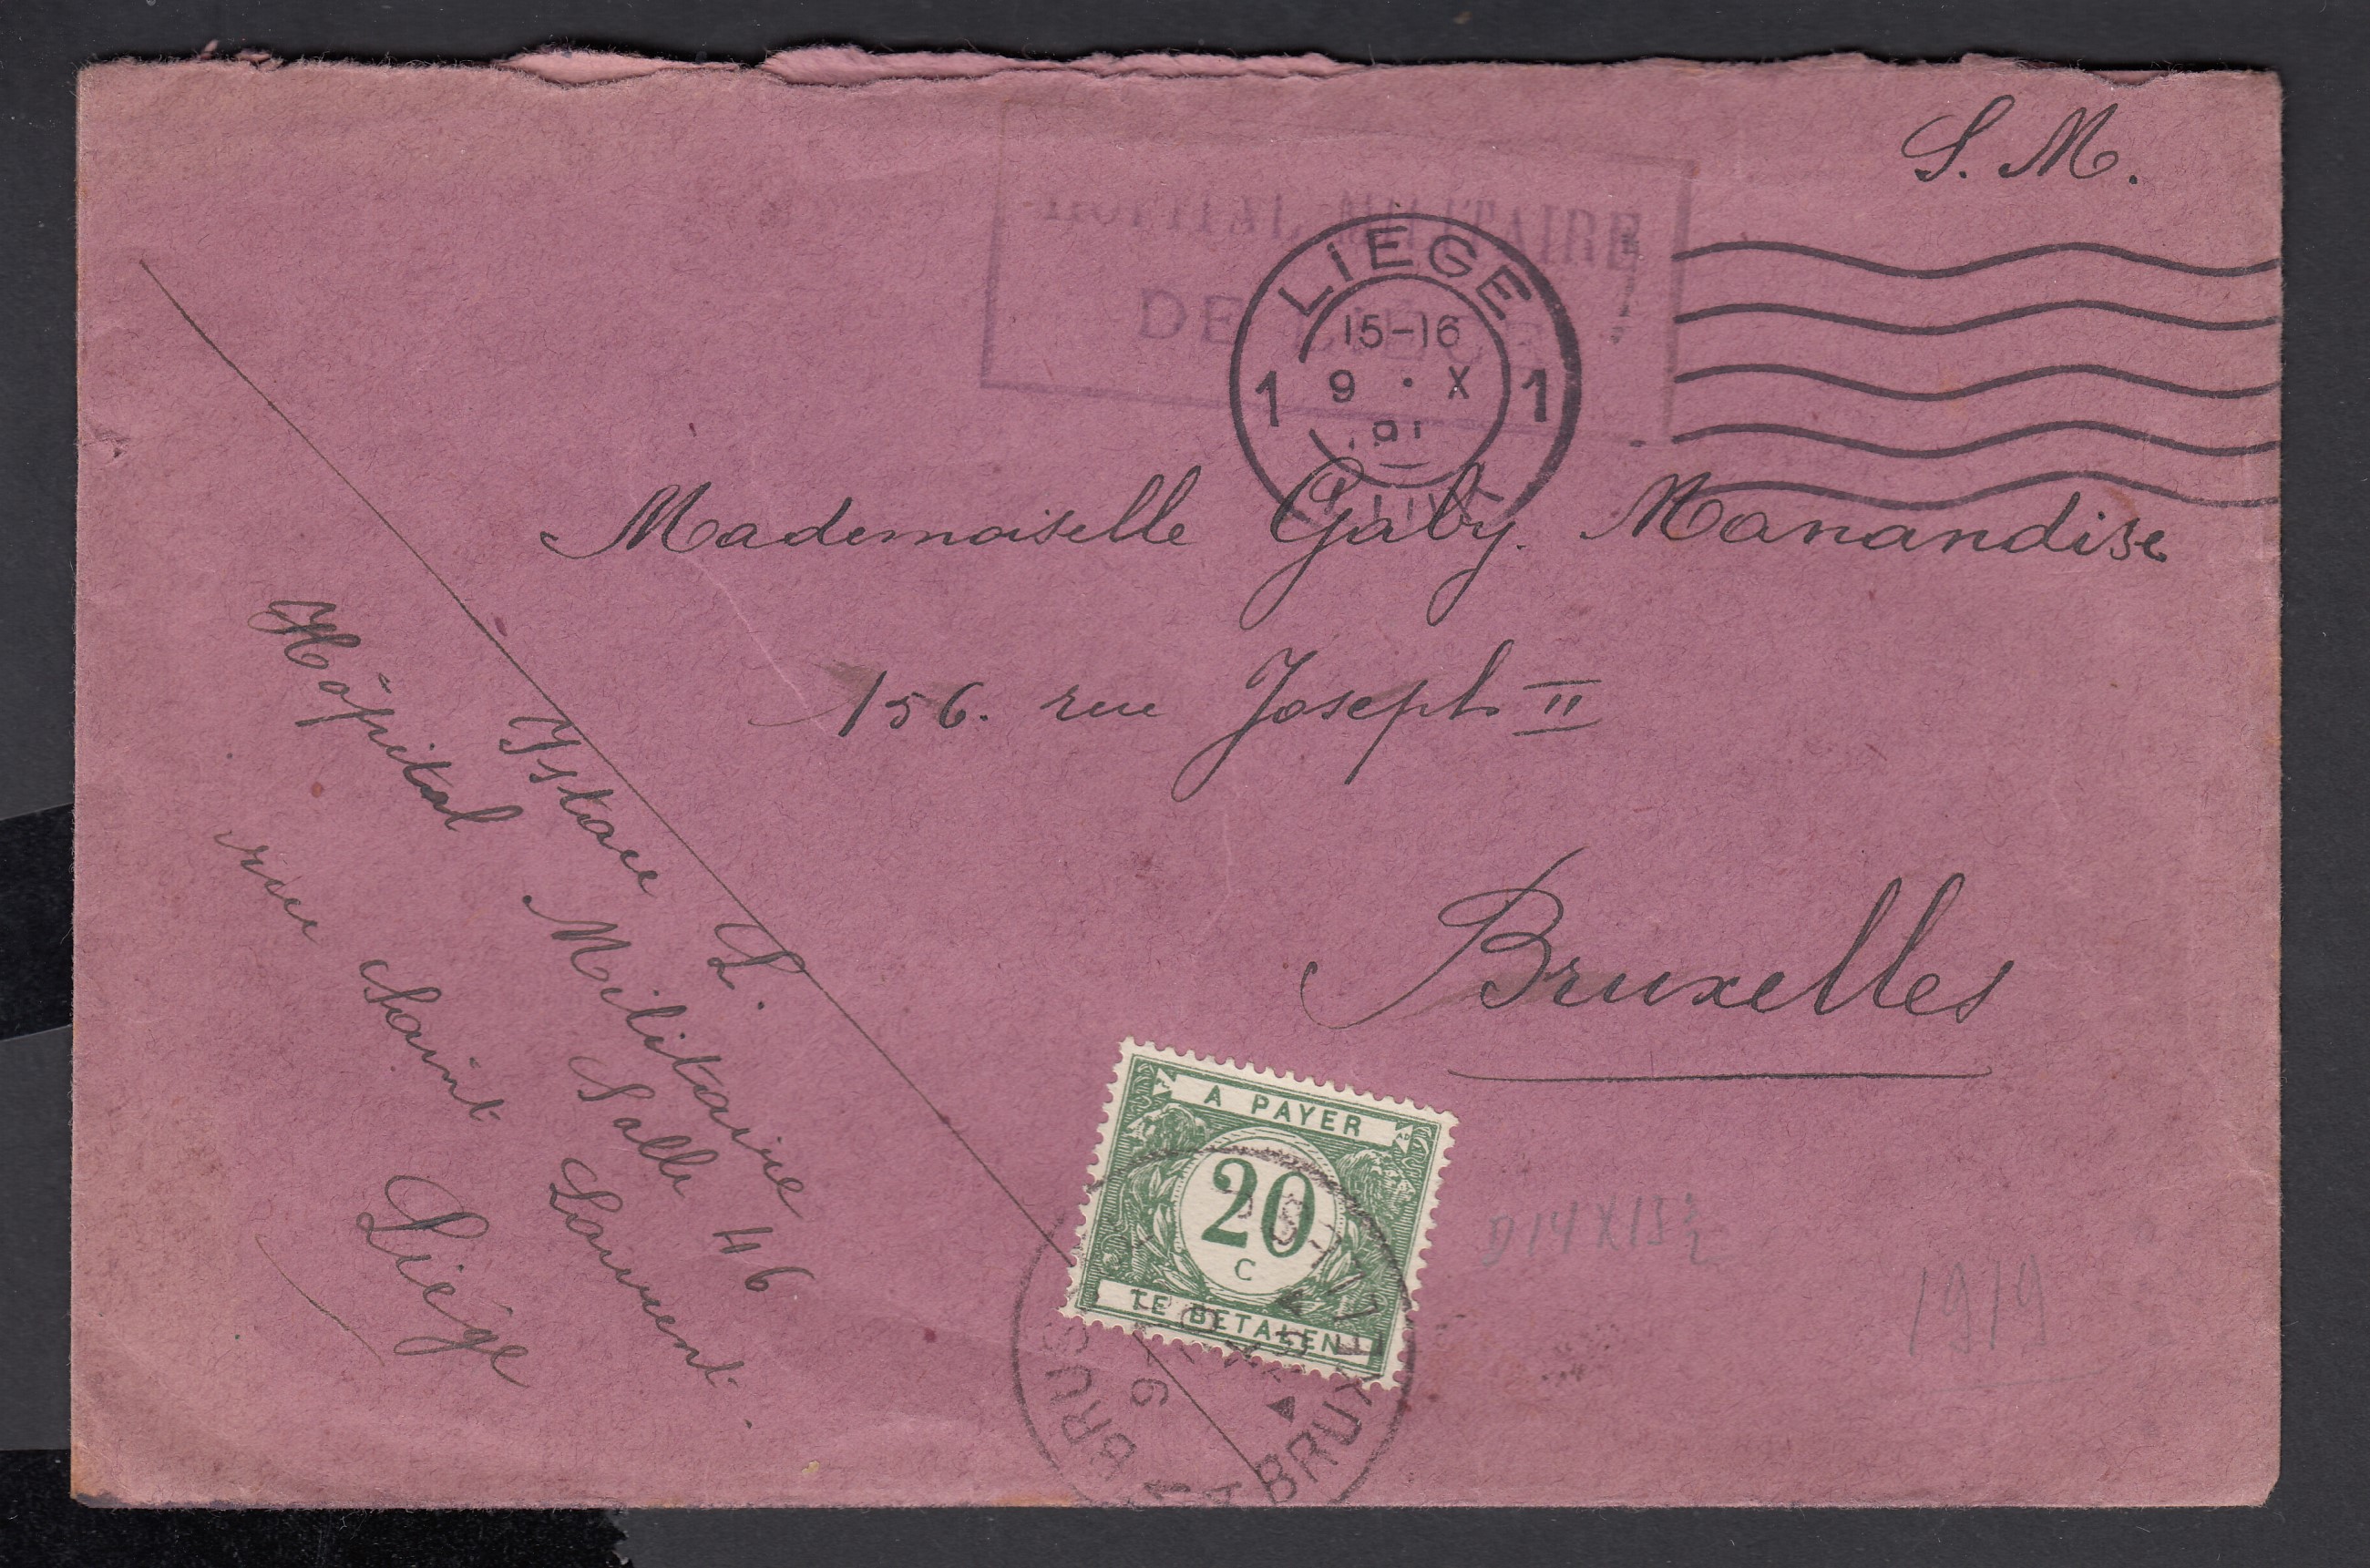 S. M.
HOPITAL MILITAIRE
DE LIEGE
LIEGE
15-16
1 9 · X 1
Mademoiselle Gaby. Manandise
156. rue Joseph II
Bruxelles
Istace L.
Hôpital Militaire
Salle 46
rue Saint Laurent.
Liége
A PAYER
20
C
TE BETALEN
BRUXELLES
BRUS
D14X15½
1919